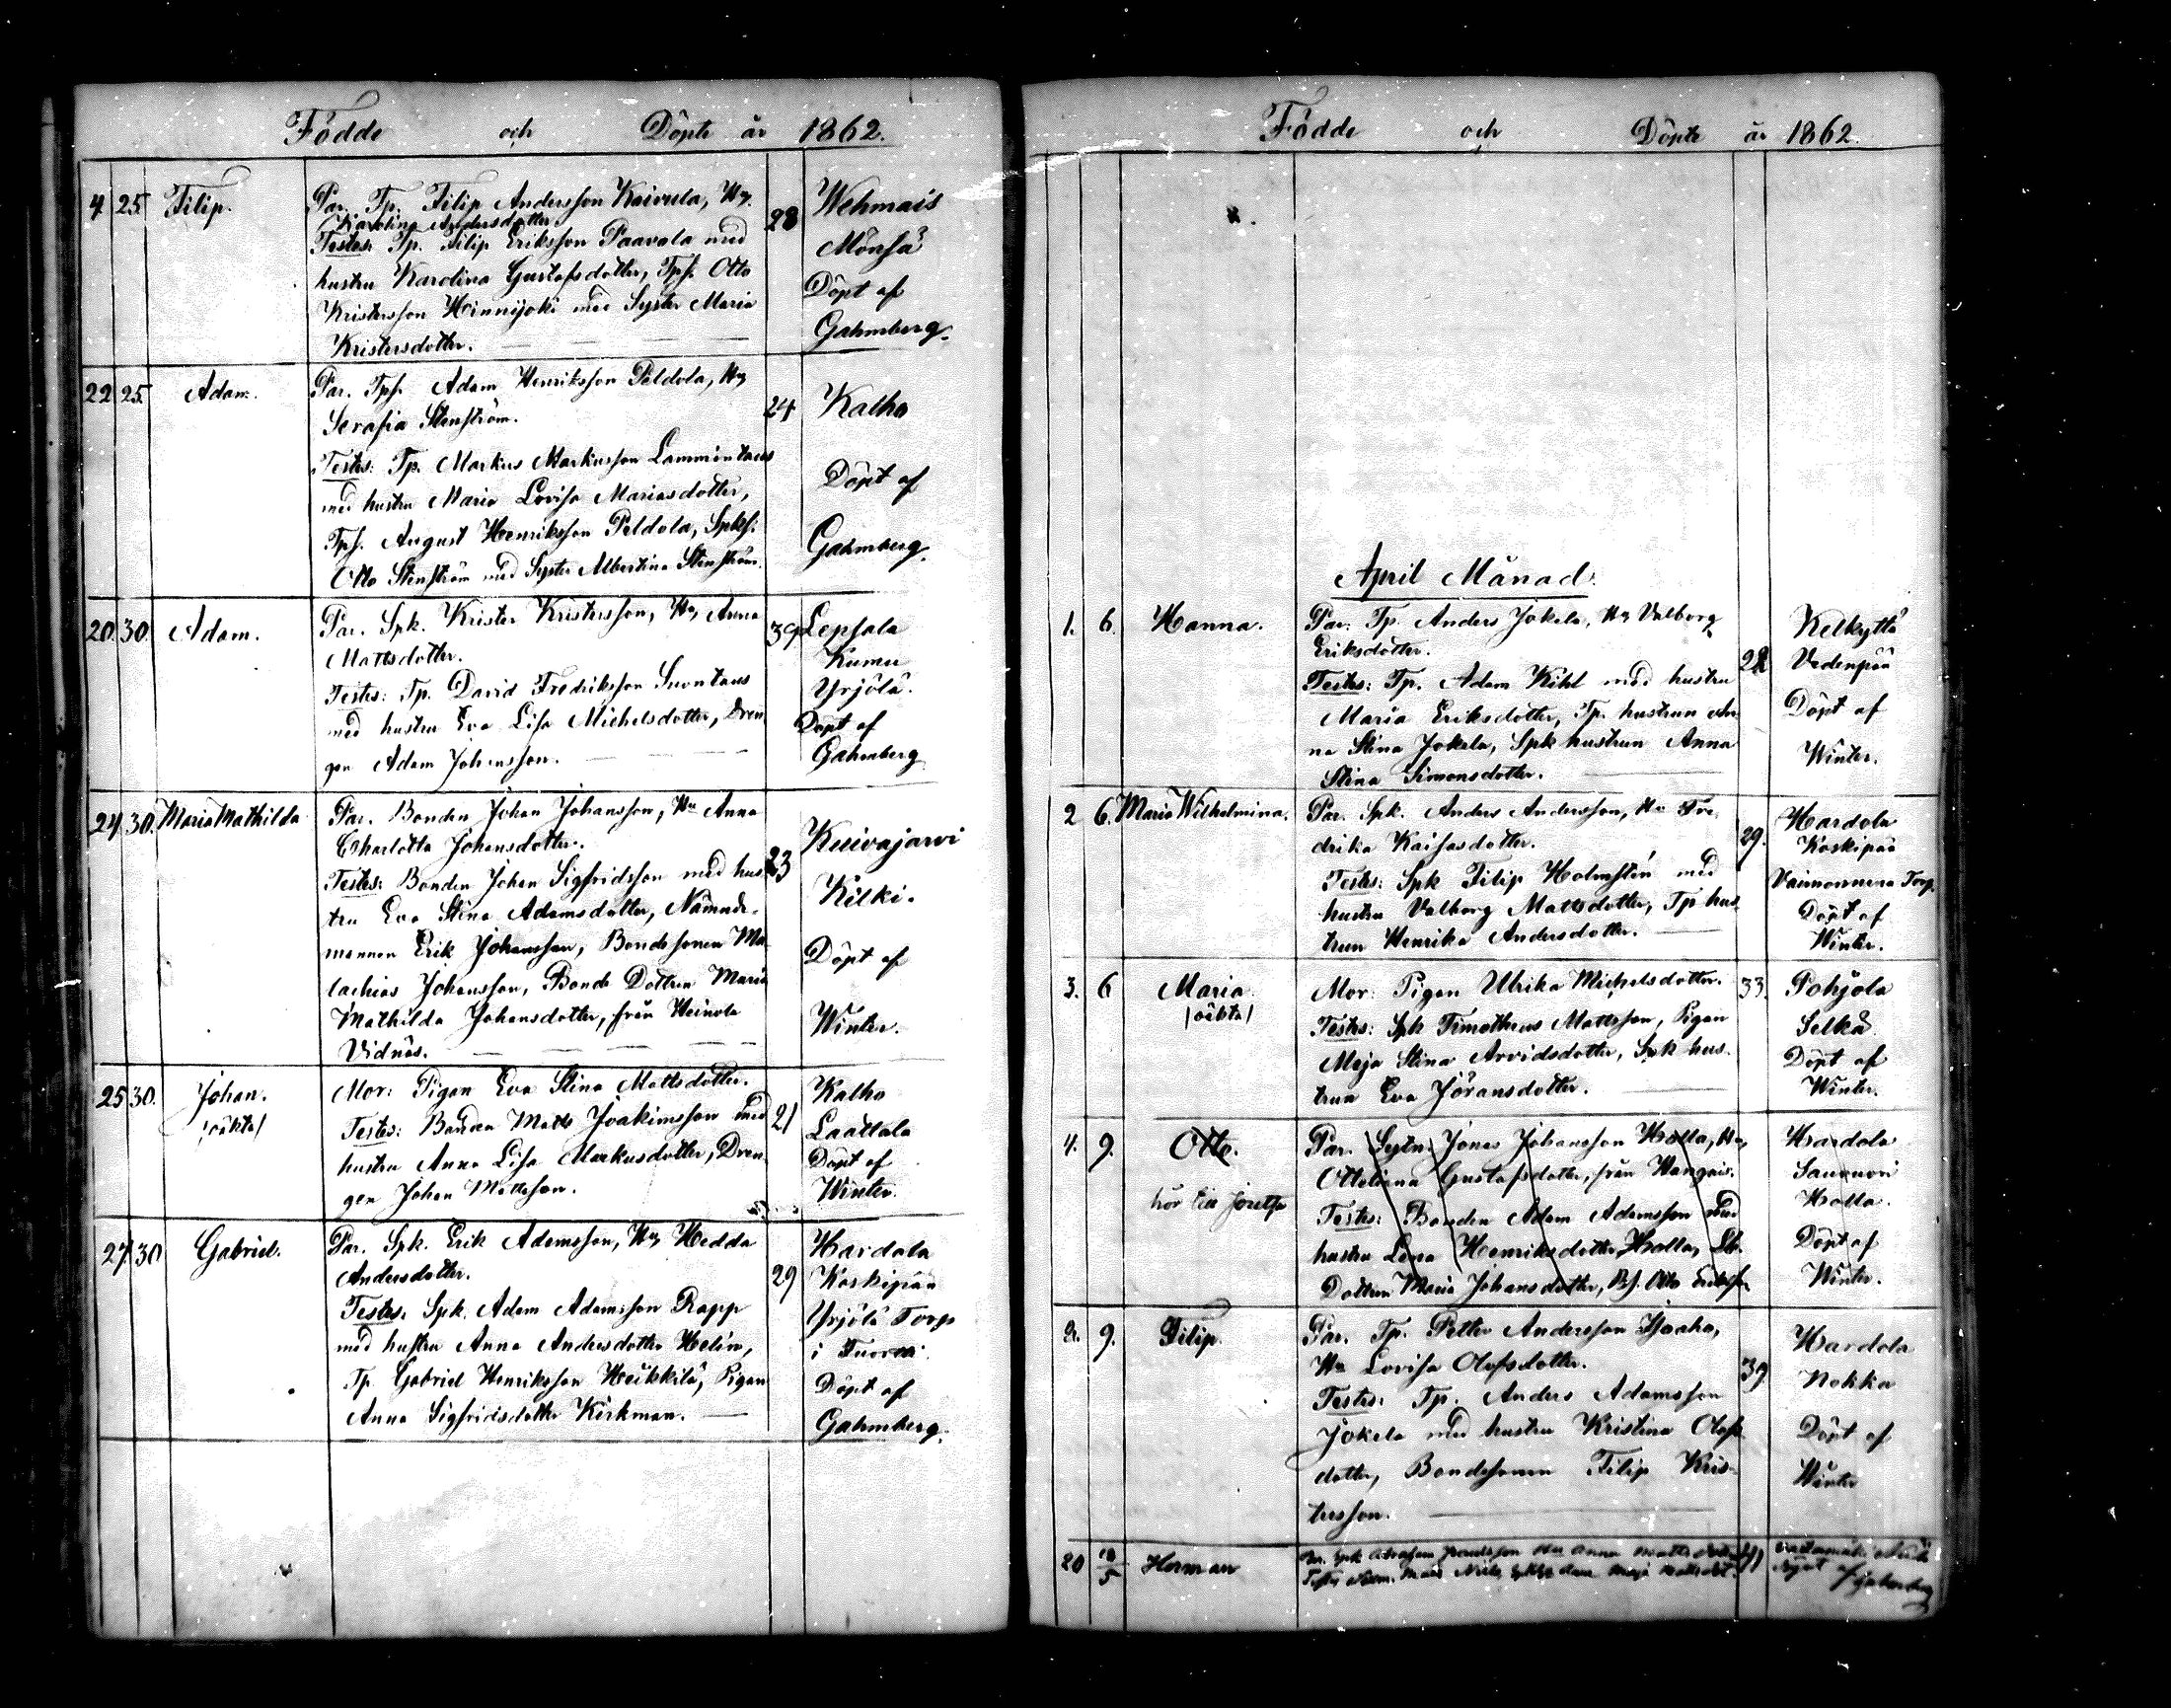 Födde och Döpte år 1862.
4 25. Filip. Par. Tp. Filip Andersson Kaivula, Hu. 28 Wehmais
Karolina Andersdotter
Testes: Tp. Filip Eriksson Paavola med Mönsä
hustru Karolina Gustafsdotter, Tps. Otto Döpt af
Kristersson Hinnijoki med Syster Maria Gahmberg.
Kristersdotter.
22 25. Adam. Par. Tps. Adam Henriksson Peldola, Hu 24 Kalho
Serafia Stenström.
Testes: Tp. Markus Markusson Lammintaus
med hustru Maria Lovisa Mariasdotter, Döpt af
Tps. August Henriksson Peldola, Spks: Gahmberg.
Otto Stenström med Syster Albertina Stenström.
20. 30. Adam. Par. Spk. Krister Kristersson, Hu, Anna 39 Lepsala
Mattsdotter. Kumu
Testes: Tp. David Fredriksson Suontaus Yrjölä.
med hustru Eva Lisa Michelsdotter, Dren Döpt af
gen Adam Johansson. Gahmberg
24. 30. Maria Mathilda Par. Bonden Johan Johansson, Hu Anna 23 Kuivajärvi
Charlotta Johansdotter.
Testes: Bonden Johan Sigfridsson med hus
tru Eva Stina Adamsdotter, Nämnde- Kilki.
mannen Erik Johansson, Bondesonen Ma-
lachias Johansson, Bonde Dottren Maria Döpt af
Mathilda Johansdotter, från Heinola Winter.
Vidnäs.
25 30. Johan. Mor: Pigan Eva Stina Mattsdotter. 21 Kalho
/oäkta/ Testes: Bonden Matts Joakimsson med Laattala
hustru Anna Lisa Markusdotter, Dren- Döpt af
gen Johan Mattsson. Winter.
27. 30 Gabriel. Par. Spk. Erik Adamsson, Hu, Hedda 29 Hardola
Andersdotter. Koskipää
Testes: Spk. Adam Adamsson Rapp Yrjölä Torp
med hustru Anna Andersdotter Helin, i
Tp. Gabriel Henriksson Heikkilä, Pigan Döpt af
Anna Sigfridsdotter Kirkman. Gahmberg.
Födde och Döpte år 1862.
April Månad.
1. 6. Hanna. Par: Tp. Anders Jokela, Hu Valborg Kelkyttä
Eriksdotter. Vedenpää
Testes: Tp. Adam Kihl med hustru
Maria Eriksdotter, Tp. hustrun An- Döpt af
na Stina Jokela, Spk hustrun Anna Winter.
Stina Simonsdotter.
2 6. Maria Wilhelmina. Par. Spk. Anders Andersson, Hu Fre 29. Hardola
drika Kaisasdotter. Koskipää
Testes: Spk Filip Holmstén med Torp.
hustru Valborg Mattsdotter, Tp hus Döpt af
trun Henrika Andersdotter. Winter.
3. 6 Maria Mor: Pigan Ulrika Michelsdotter. 33. Pohjola
/oäkta/ Testes: Spk Timotheus Mattsson, Pigan Selkä
Maja Stina Arvidsdotter, Spk hus- Döpt af
trun Eva Jöransdotter. Winter.
4. 9. Otto. Par. Sytn. Jonas Johansson Holla, Hu, Hardola
Otteliana Gustafsdotter, från Wangais.
Testes: Bonden Adam Adamsson med Holla.
hustru Lena Henriksdotter Holla, Döpt af
Dottren Maria Johansdotter, Bs. Otto Winter.
2. 9. Filip. Par. Tp. Petter Andersson 39 Hardola
Hu Lovisa Olofsdotter. Nokka
Testes: Tp. Anders Adamsson
Jokela med hustru Kristina Olofs Döpt af
dotter, Bondesonen Filip Kris- Winter
tersson.
20 Herman